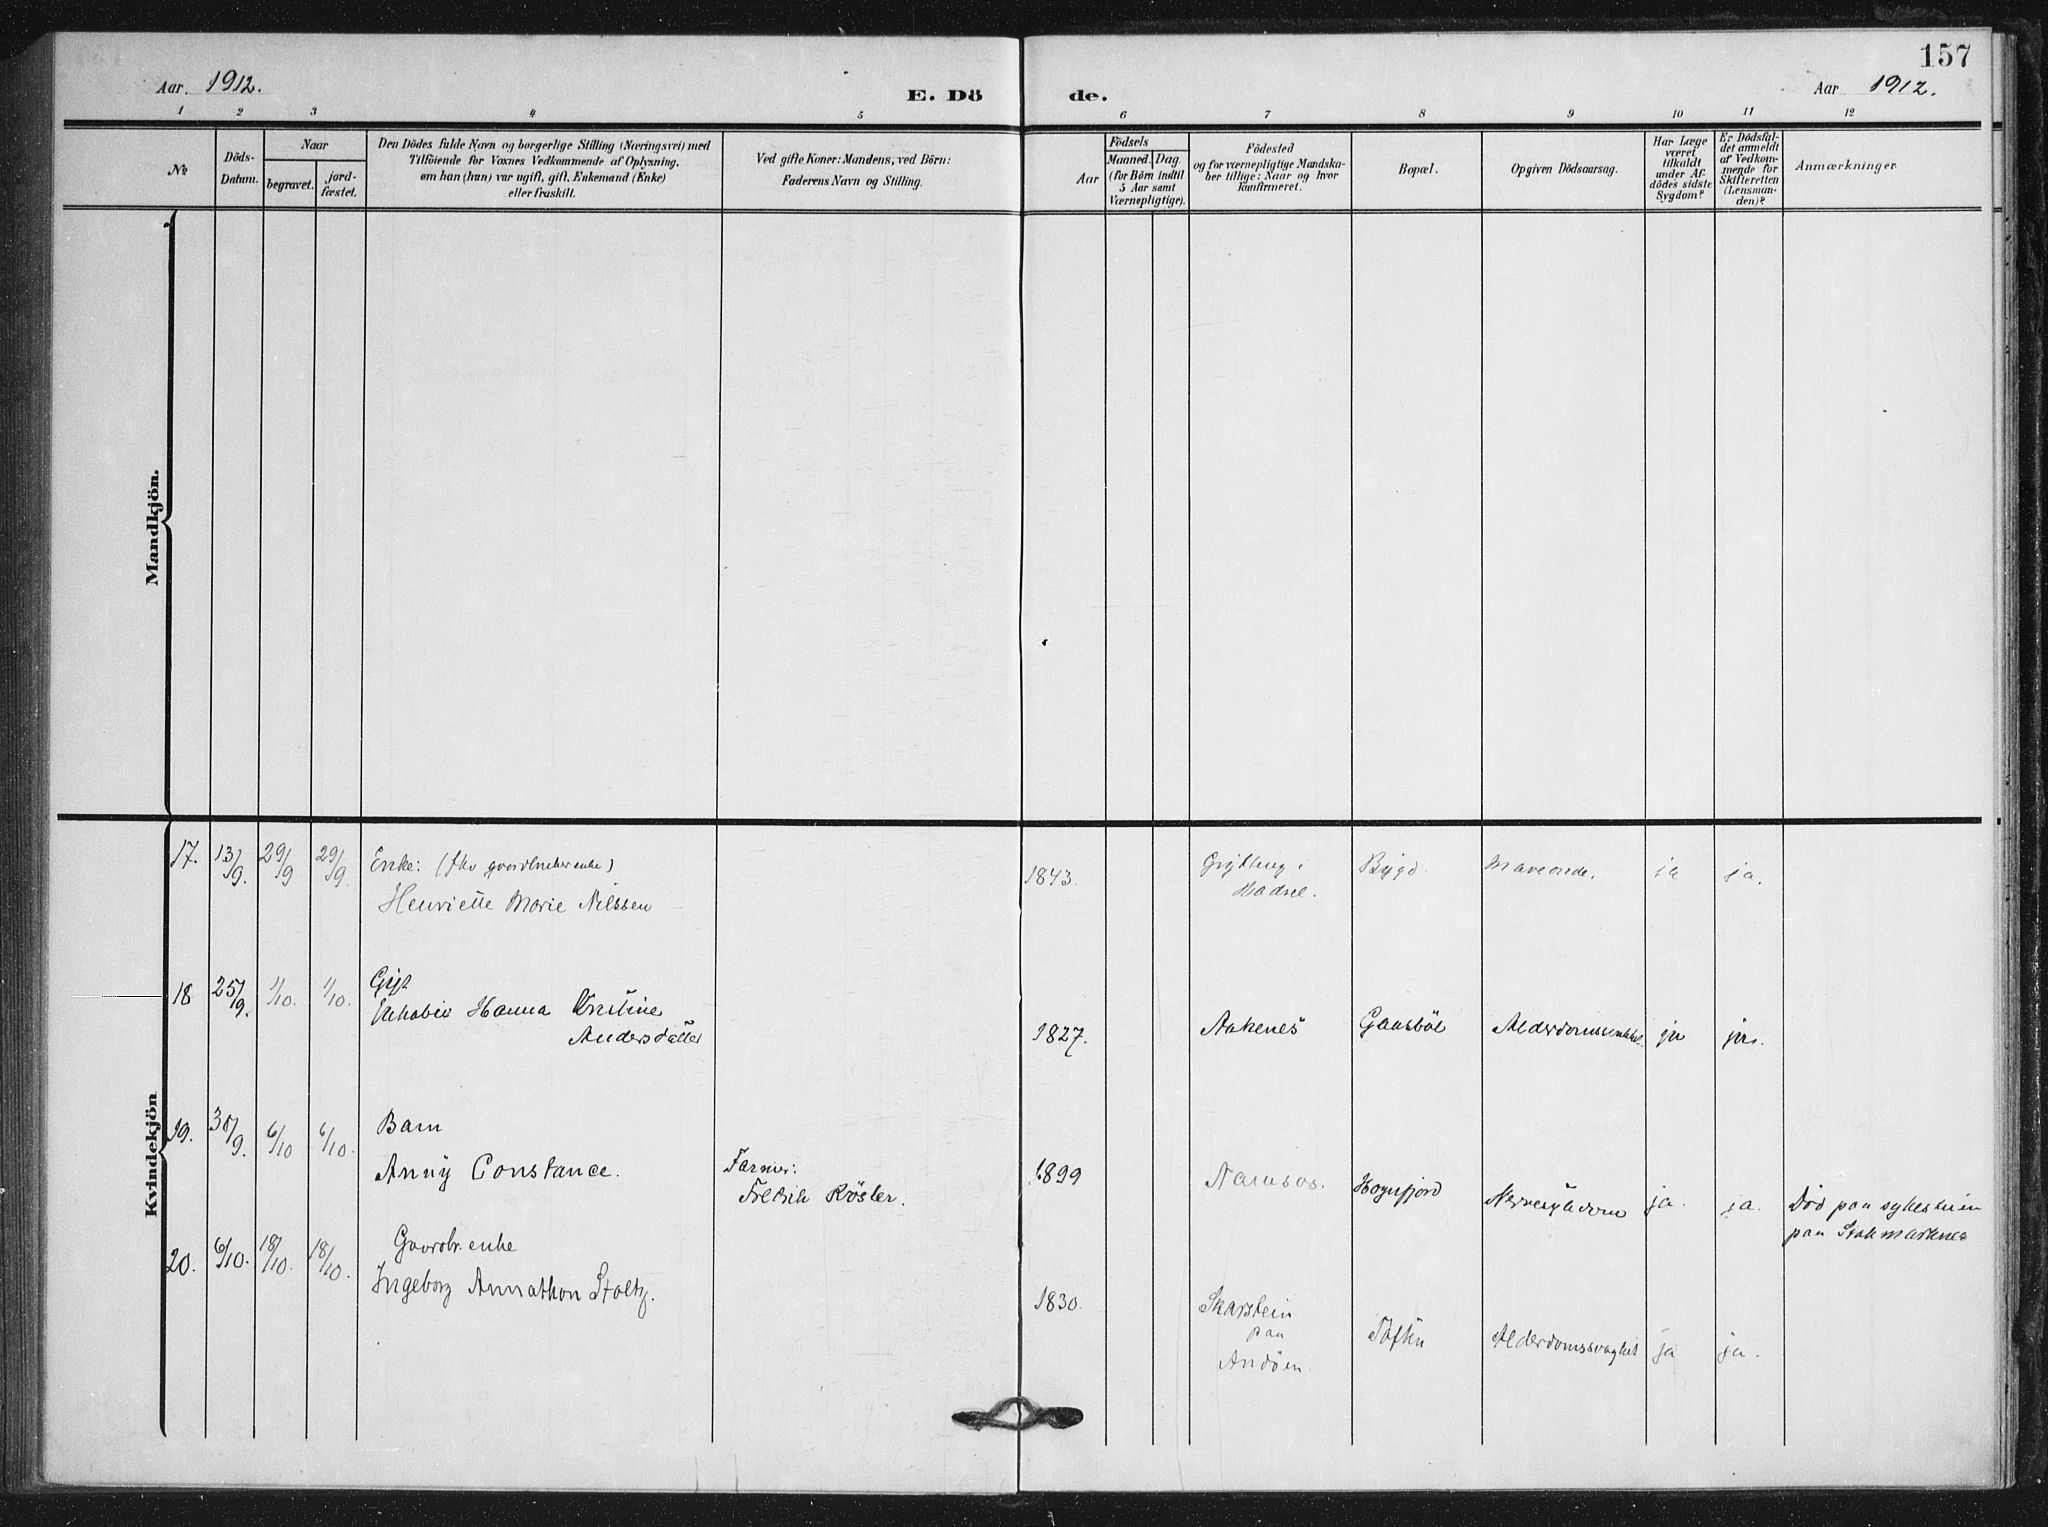 157
Aar. 1912.
E. Dö de.
Aar 1912.
1 2 3 4 5 6 7 8 9 10 11 12
No
Döds-
Datum.
Naar
begravet.
jord-
fæstet.
Den Dödes fulde Navn og borgerlige Stilling (Næringsvei) med
Tilföiende for Voxnes Vedkommende af Oplysning,
om han (hun) var ugift, gift, Enkemand (Enke)
eller fraskilt.
Ved gifte Koner: Mandens, ved Börn:
Faderens Navn og Stilling.
Födsels
Aar
Maaned. Dag.
(for Börn indtil
5 Aar samt
Værnepligtige).
Födested
og for værnepligtige Mandska-
ber tillige: Naar og hvor
konfirmeret.
Bopæl.
Opgiven Dödsaarsag.
Har Læge
været
tilkaldt
under Af-
dödes sidste
Sygdom?
Er Dödsfal-
det anmeldt
af Vedkom-
mende for
Skifteretten
(Lensman-
den)?
Anmærkninger
Mandkjön.
Kvindekjön
17. 13/9. 29/9 29/9. Enke:
Henriette Marie Nilssen
1843.
Hadsel.
Bygd. ja ja.
18 25/9. 1/10. 1/10. Gift
Hanna
Andersdatter
1827. Aakenes ja ja.
19. 6/10 6/10. Barn
Anny Constance.
Farmer:
Fredrik Røsler.
1899 Namsos. Hognfjord Nervesygdom ja. ja. Död paa sykestuen
paa Stokmarknes
20. 6/10. 18/10. 18/10. Gaardbr. enke
Ingeborg Annathon Stoltz.
1830. Skarstein
paa
Andöen.
Alderdomssvaghet ja ja.